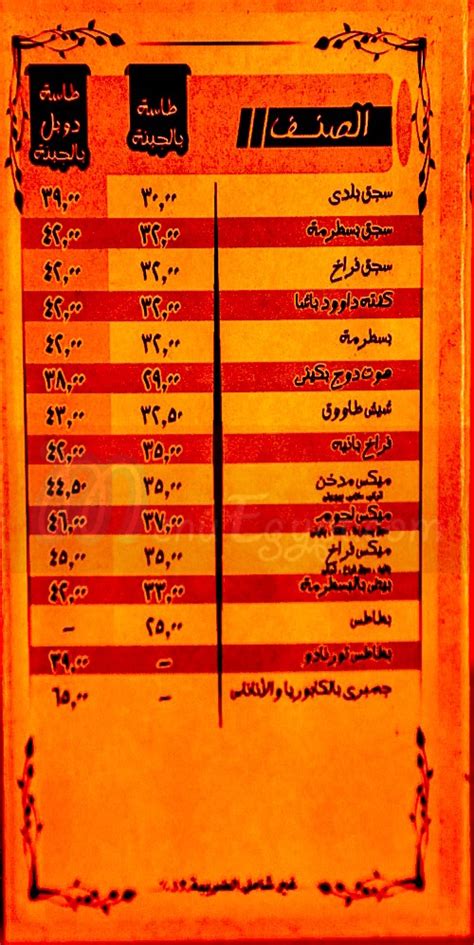 الصنف
طاسة بالجبنة
طاسة دوبل بالجبنة
سجق بلدى ٣٠,٠٠ ٣٩,٠٠
سجق بسطرمة ٣٢,٠٠ ٤٢,٠٠
سجق فراخ ٣٢,٠٠ ٤٢,٠٠
كفته داوود باشا ٣٢,٠٠ ٤٢,٠٠
بسطرمة ٣٢,٠٠ ٤٢,٠٠
هوت دوج بكينى ٢٩,٠٠ ٣٨,٠٠
شيش طاووق ٣٢,٥٠ ٤٣,٠٠
فراخ بانيه ٣٥,٠٠ ٤٢,٠٠
ميكس مدخن ٣٥,٠٠ ٤٤,٥٠
ميكس لحوم ٣٧,٠٠ ٤٦,٠٠
ميكس فراخ ٣٥,٠٠ ٤٥,٠٠
بيض بالبسطرمة ٣٣,٠٠ ٤٢,٠٠
بطاطس ٢٥,٠٠ -
بطاطس تورنادو - ٣٩,٠٠
جمبرى بالكابوريا والأناناس - ٦٥,٠٠
غير شامل الضريبة